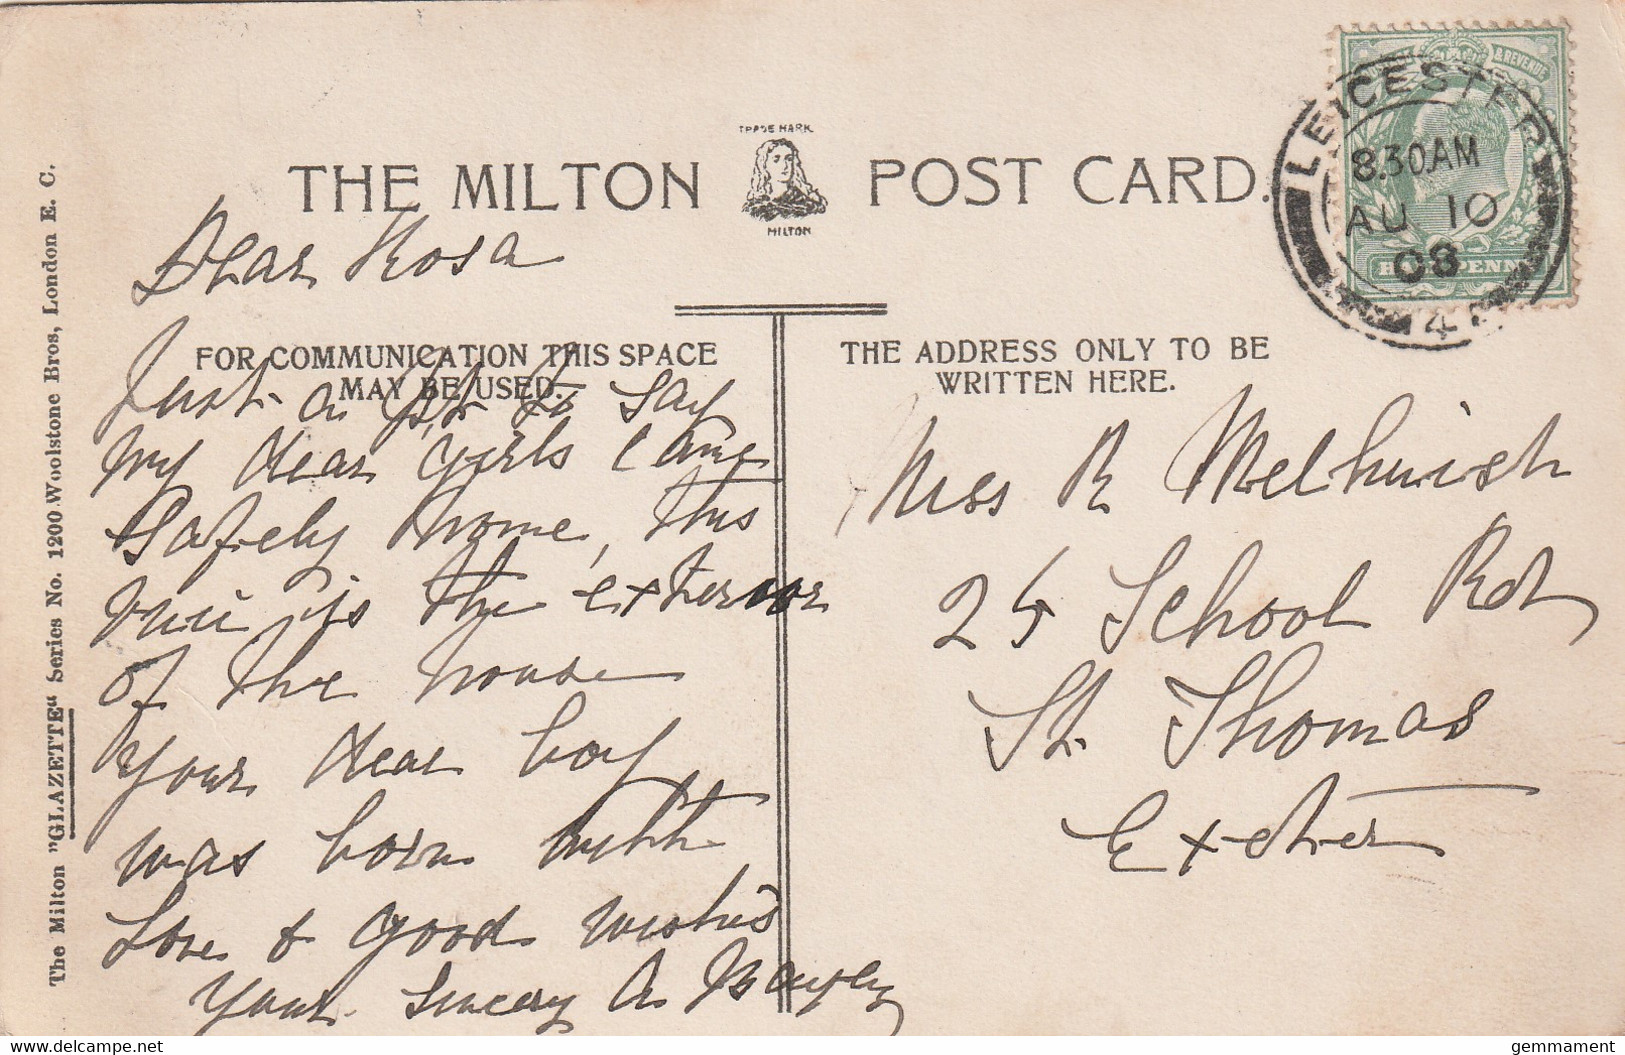 THE MILTON POST CARD.
TRADE MARK
MILTON
FOR COMMUNICATION THIS SPACE
MAY BE USED.
THE ADDRESS ONLY TO BE
WRITTEN HERE.
The Milton "GLAZETTE" Series No. 1200 Woolstone Bros, London E. C.
Dear Rosa
Just a P.C. to say
my dear girls came
safely home, this
view is the exterior
of the house
your dear boy
was born with
Love & good wishes
Your Sincery A
Miss R Melhuish
25 School Rd
St. Thomas
Exeter
POSTAGE & REVENUE
HALFPENNY
LEICESTER
8.30AM
AU 10
08
4
gemmament
delcampe.net